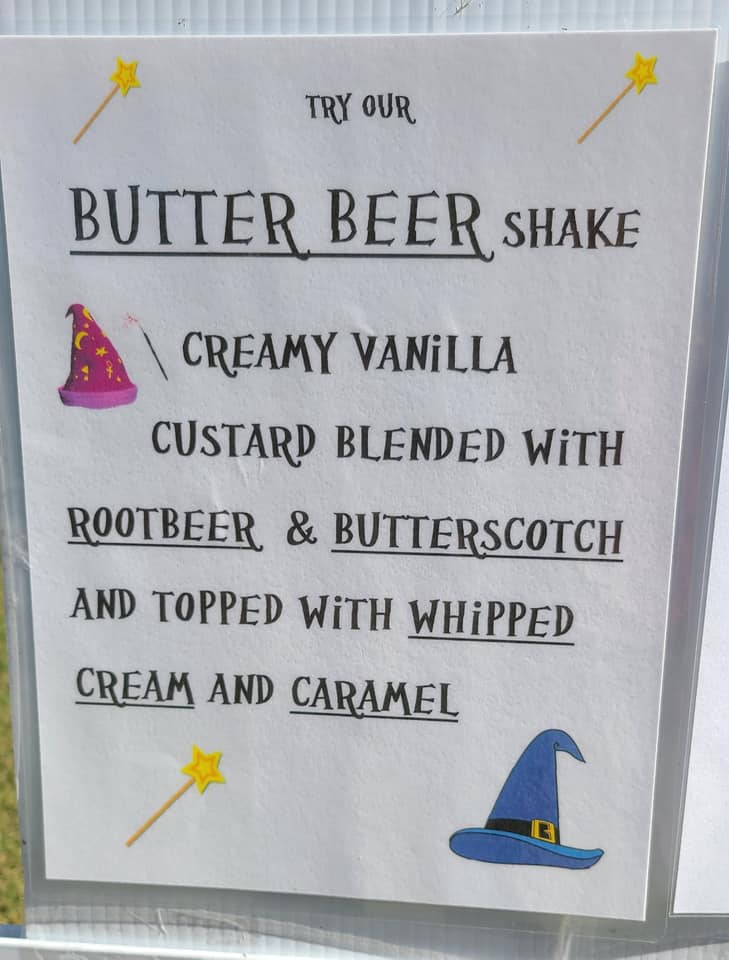 TRY OUR
BUTTER BEER SHAKE
CREAMY VANiLLA
CUSTARD BLENDED WiTH
ROOTBEER & BUTTERSCOTCH
AND TOPPED WiTH WHiPPED
CREAM AND CARAMEL